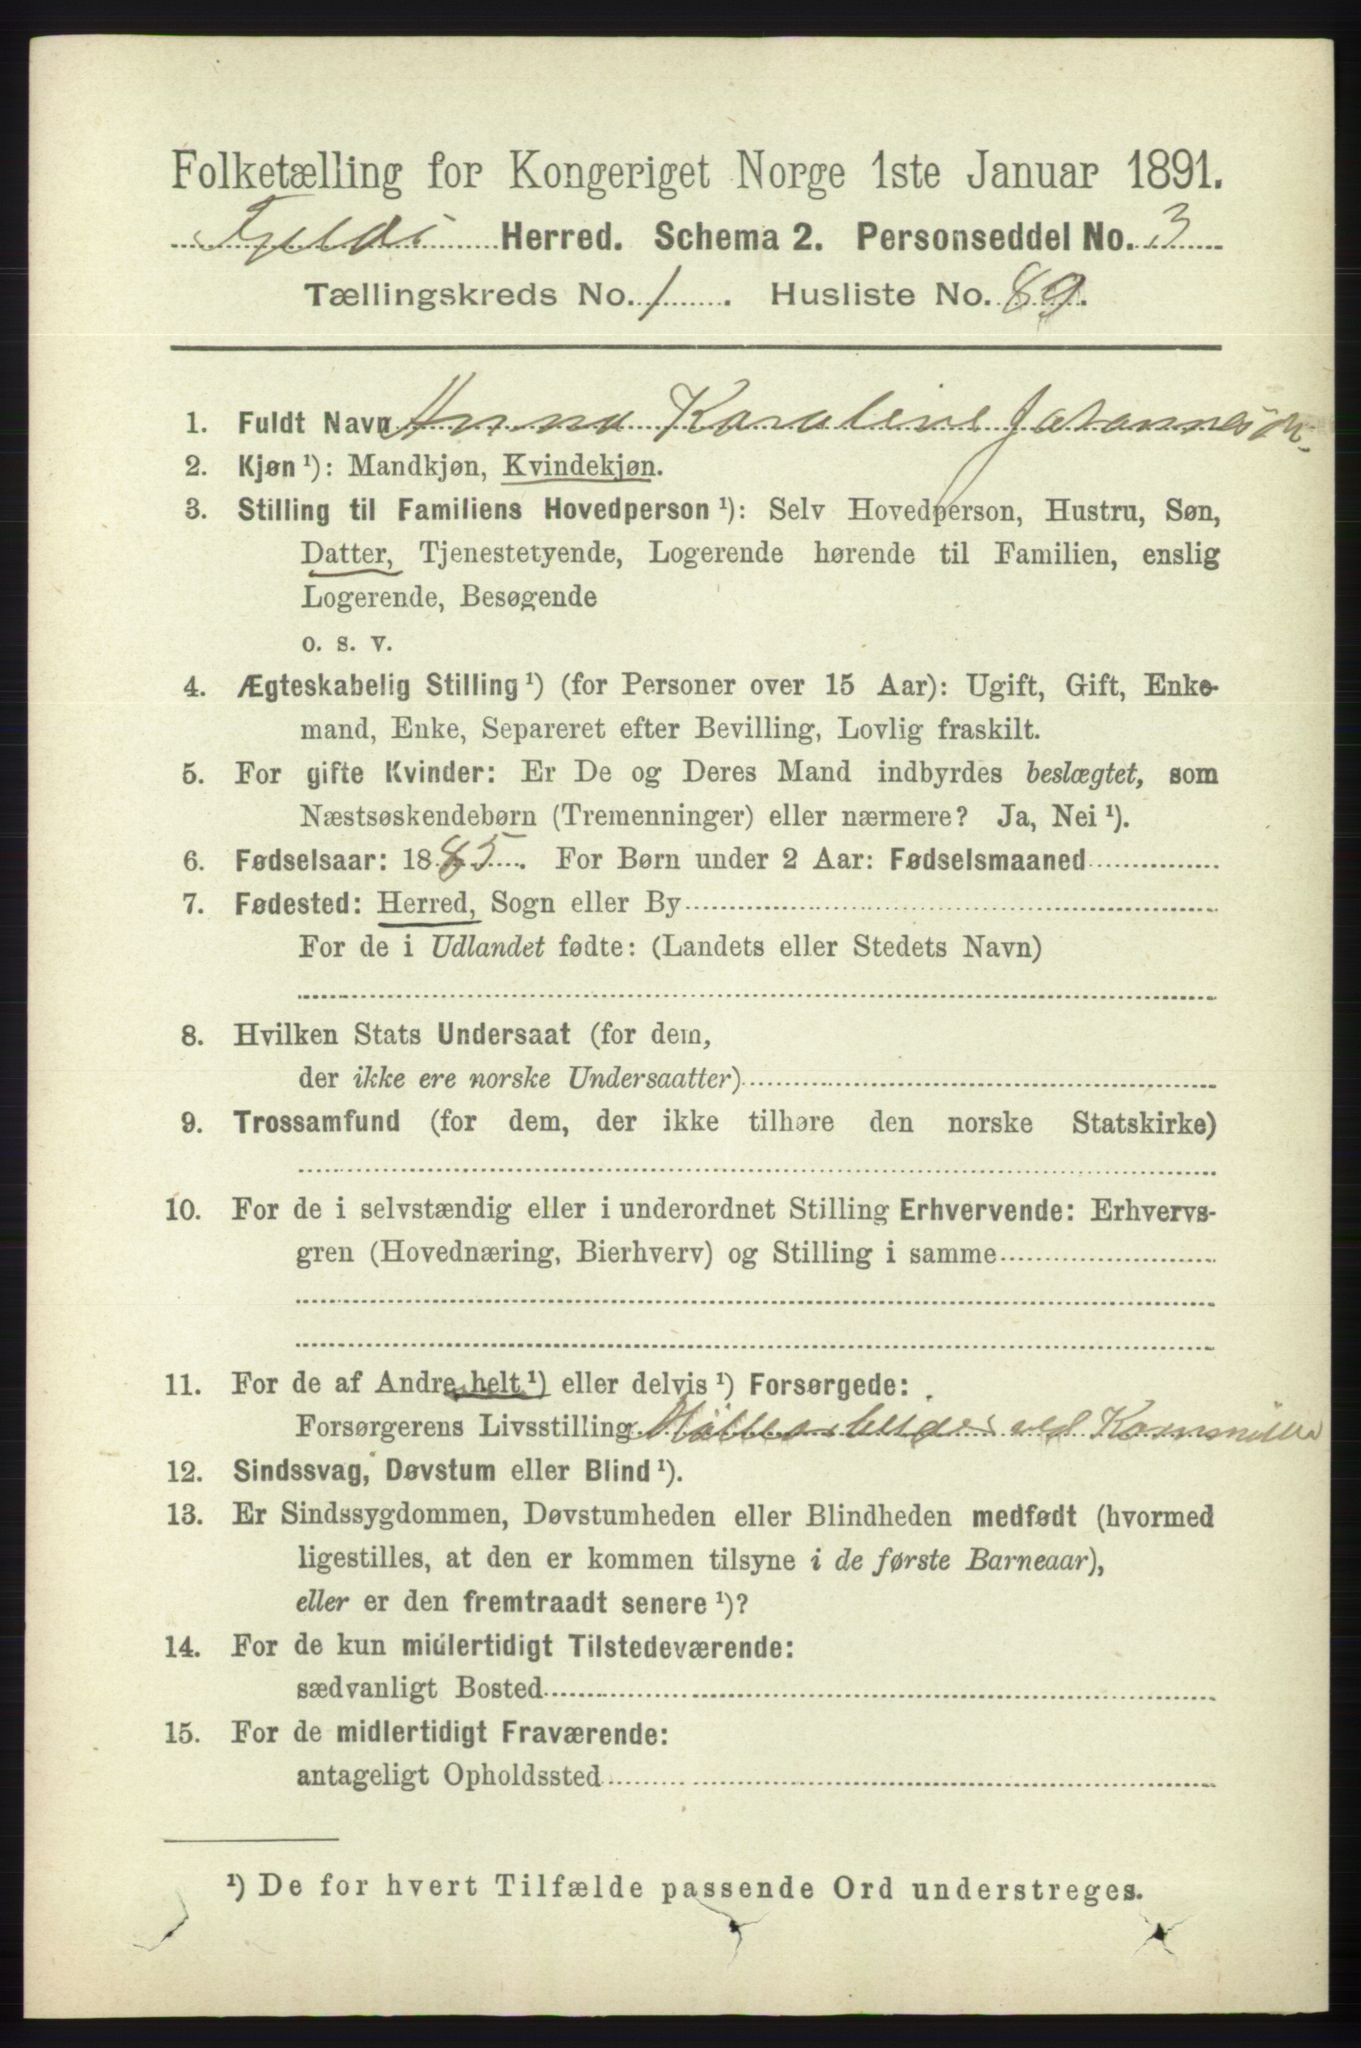 Folketælling for Kongeriget Norge 1ste Januar 1891.
Herred. Schema 2. Personseddel No. 3
Tællingskreds No. 1. Husliste No. 89.
1. Fuldt Navn Anna Karoline Johannesdtr.
2. Kjøn ¹): Mandkjøn, Kvindekjøn.
3. Stilling til Familiens Hovedperson ¹): Selv Hovedperson, Hustru, Søn,
Datter, Tjenestetyende, Logerende hørende til Familien, enslig
Logerende, Besøgende
o. s. v.
4. Ægteskabelig Stilling ¹) (for Personer over 15 Aar): Ugift, Gift, Enke-
mand, Enke, Separeret efter Bevilling, Lovlig fraskilt.
5. For gifte Kvinder: Er De og Deres Mand indbyrdes beslægtet, som
Næstsøskendebørn (Tremenninger) eller nærmere? Ja, Nei ¹).
6. Fødselsaar: 1885. For Børn under 2 Aar: Fødselsmaaned
7. Fødested: Herred, Sogn eller By
For de i Udlandet fødte: (Landets eller Stedets Navn)
8. Hvilken Stats Undersaat (for dem,
der ikke ere norske Undersaatter)
9. Trossamfund (for dem, der ikke tilhøre den norske Statskirke)
10. For de i selvstændig eller i underordnet Stilling Erhvervende: Erhvervs-
gren (Hovednæring, Bierhverv) og Stilling i samme
11. For de af Andre helt ¹) eller delvis ¹) Forsørgede:
Forsørgerens Livsstilling Møllearbeider ved Kornmølle
12. Sindssvag, Døvstum eller Blind ¹).
13. Er Sindssygdommen, Døvstumheden eller Blindheden medfødt (hvormed
ligestilles, at den er kommen tilsyne i de første Barneaar),
eller er den fremtraadt senere ¹)?
14. For de kun midlertidigt Tilstedeværende:
sædvanligt Bosted
15. For de midlertidigt Fraværende:
antageligt Opholdssted
¹) De for hvert Tilfælde passende Ord understreges.